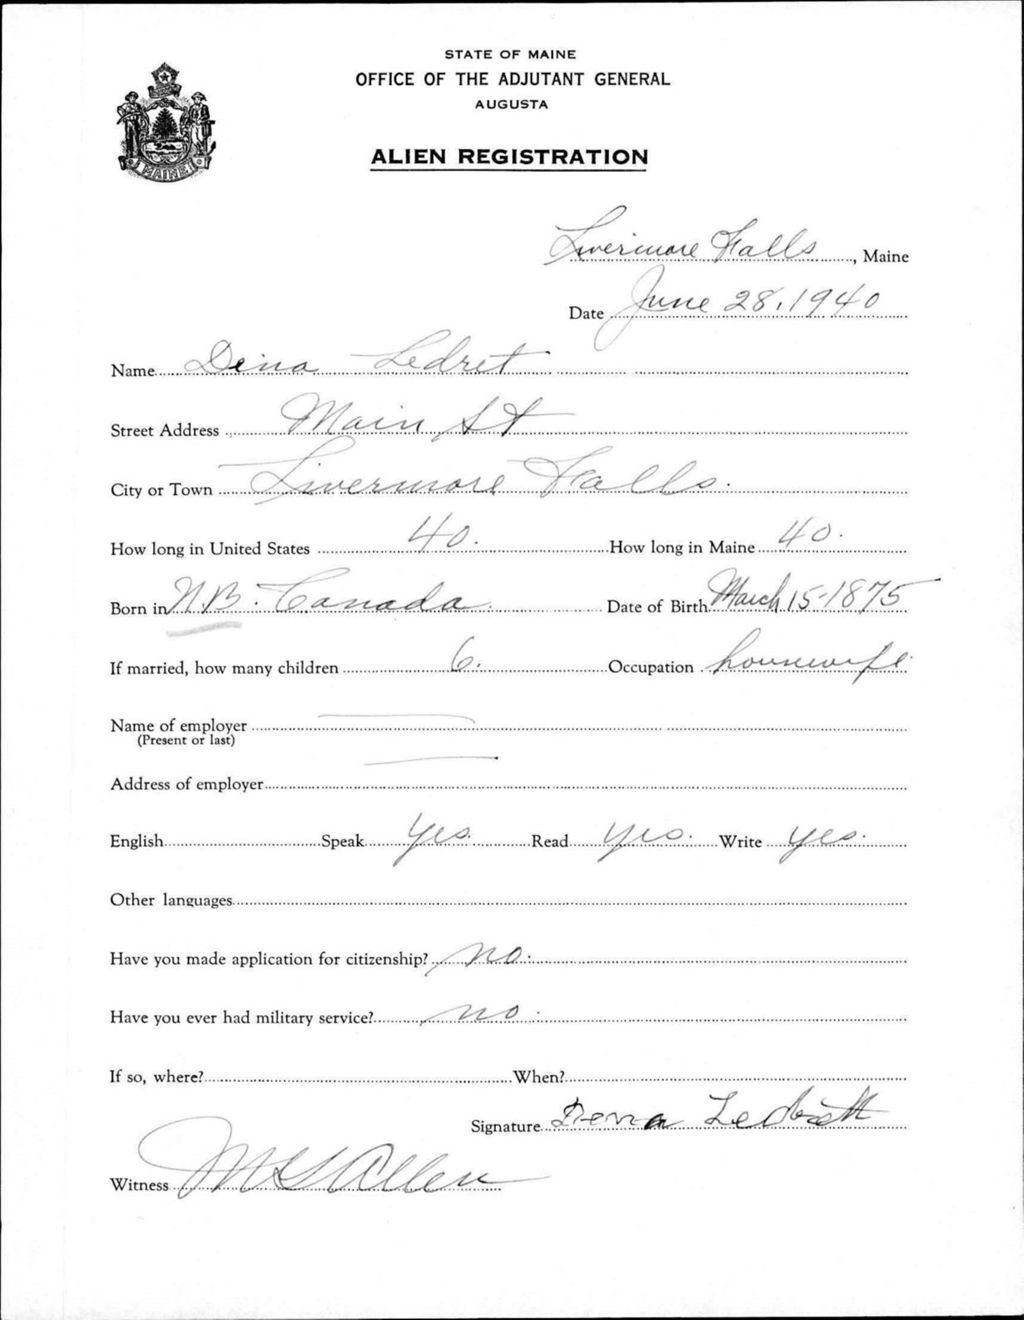 STATE OF MAINE
OFFICE OF THE ADJUTANT GENERAL
AUGUSTA
ALIEN REGISTRATION
MAINE
Livermore Falls, Maine
Date June 28, 1940
Name Dina Ledret
Street Address Main St
City or Town Livermore Falls.
How long in United States 40. How long in Maine 40.
Born in N.B. Canada Date of Birth March 15-1875
If married, how many children 6. Occupation housewife
Name of employer
(Present or last)
Address of employer
English Speak Yes. Read yes. Write yes.
Other languages
Have you made application for citizenship? no.
Have you ever had military service? no.
If so, where? When?
Signature Dena
Witness Allen